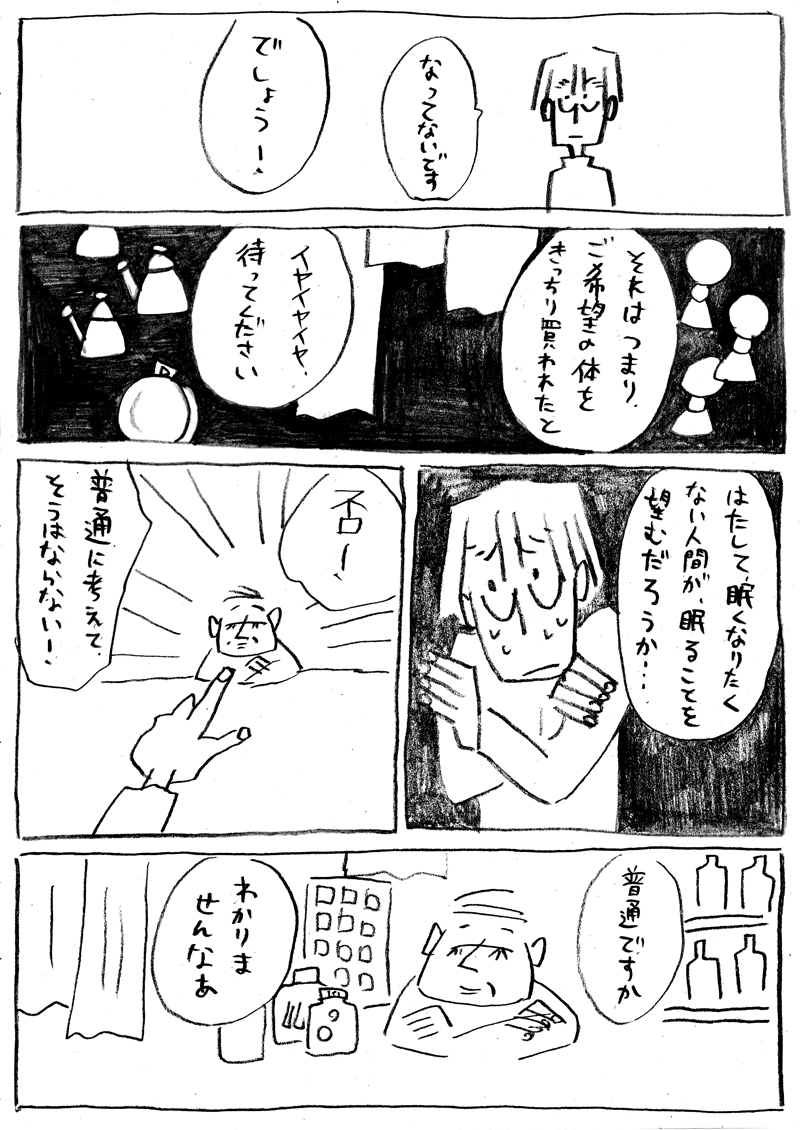 なってないです
でしょうー、
それはつまり、
ご希望の体を
きっちり買われたと
イヤイヤイヤ、
待ってください
はたして、眠くなりたく
ない人間が、眠ることを
望むだろうか…
不ロー、
普通に考えて
そうはならないー、
普通ですか
わかりま
せんなあ